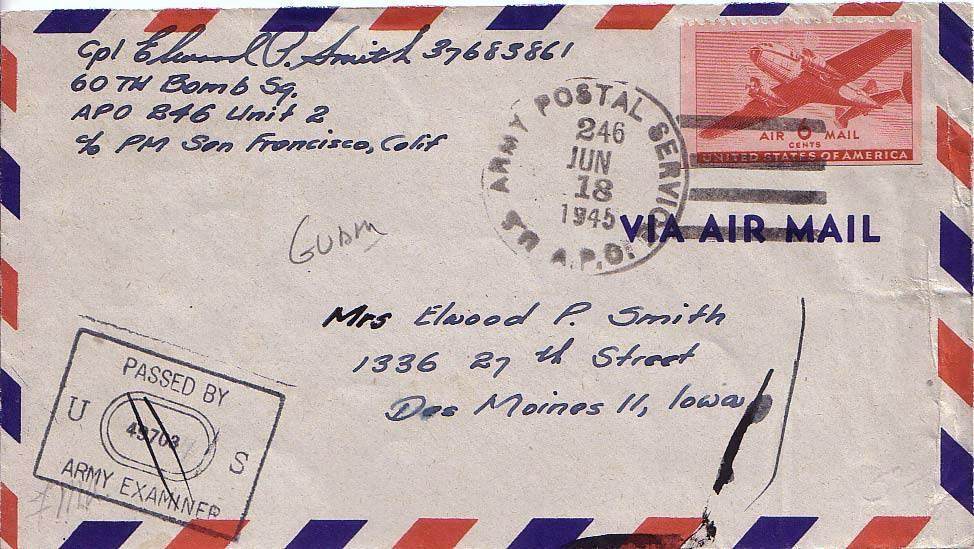 Cpl Elwood P. Smith 37683861
60 TH Bomb Sq.
APO 246 Unit 2
c/o PM San Francisco, Calif
U.S. ARMY POSTAL SERVICE
246
JUN
18
1945
A.P.O.
AIR 6 MAIL
CENTS
UNITED STATES OF AMERICA
VIA AIR MAIL
GUAM
Mrs Elwood P. Smith
1336 27 th Street
Des Moines 11, Iowa
PASSED BY
U 49703 S
ARMY EXAMINER